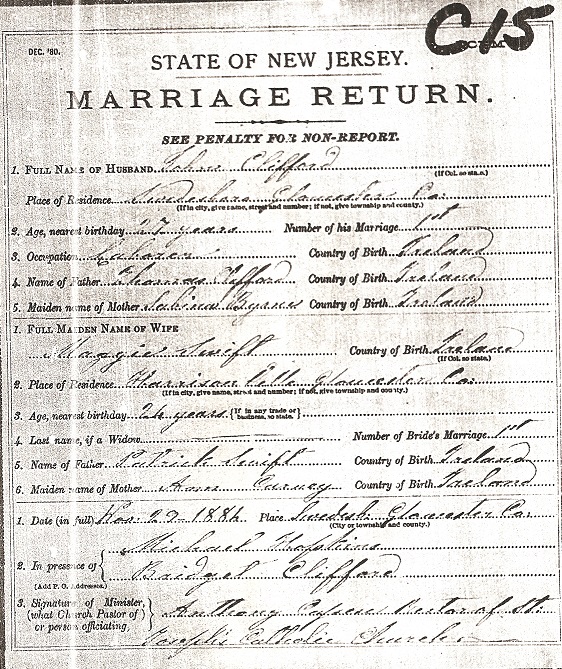 C15
DEC. '80.
STATE OF NEW JERSEY.
MARRIAGE RETURN.
SEE PENALTY FOR NON-REPORT.
1. FULL NAME OF HUSBAND John Clifford
(If Col. so state.)
Place of Residence Swedesboro Gloucester Co.
(If in city, give name, street and number; if not, give township and county.)
2. Age, nearest birthday 27 years Number of his Marriage 1st
3. Occupation Laborer Country of Birth Ireland
4. Name of Father Thomas Clifford Country of Birth Ireland
5. Maiden name of Mother Sabina Byrnes Country of Birth Ireland
1. FULL MAIDEN NAME OF WIFE
Maggie Swift Country of Birth Ireland
(If Col. so state.)
2. Place of Residence Harrison Ville Gloucester Co.
(If in city, give name, street and number; if not, give township and county.)
3. Age, nearest birthday 24 years {If in any trade or business, so state.}
4. Last name, if a Widow Number of Bride's Marriage 1st
5. Name of Father Patrick Swift Country of Birth Ireland
6. Maiden name of Mother Ann Carney Country of Birth Ireland
1. Date (in full) Nov. 27 1884 Place Swedesb. Gloucester Co.
(City or township and county.)
Michael Hopkins
2. In presence of
Bridget Clifford
[Add P. O. Addresses.]
3. Signature of Minister, (what Church, Pastor of) or person officiating, Anthony Rector of St.
Joseph's Catholic Church.